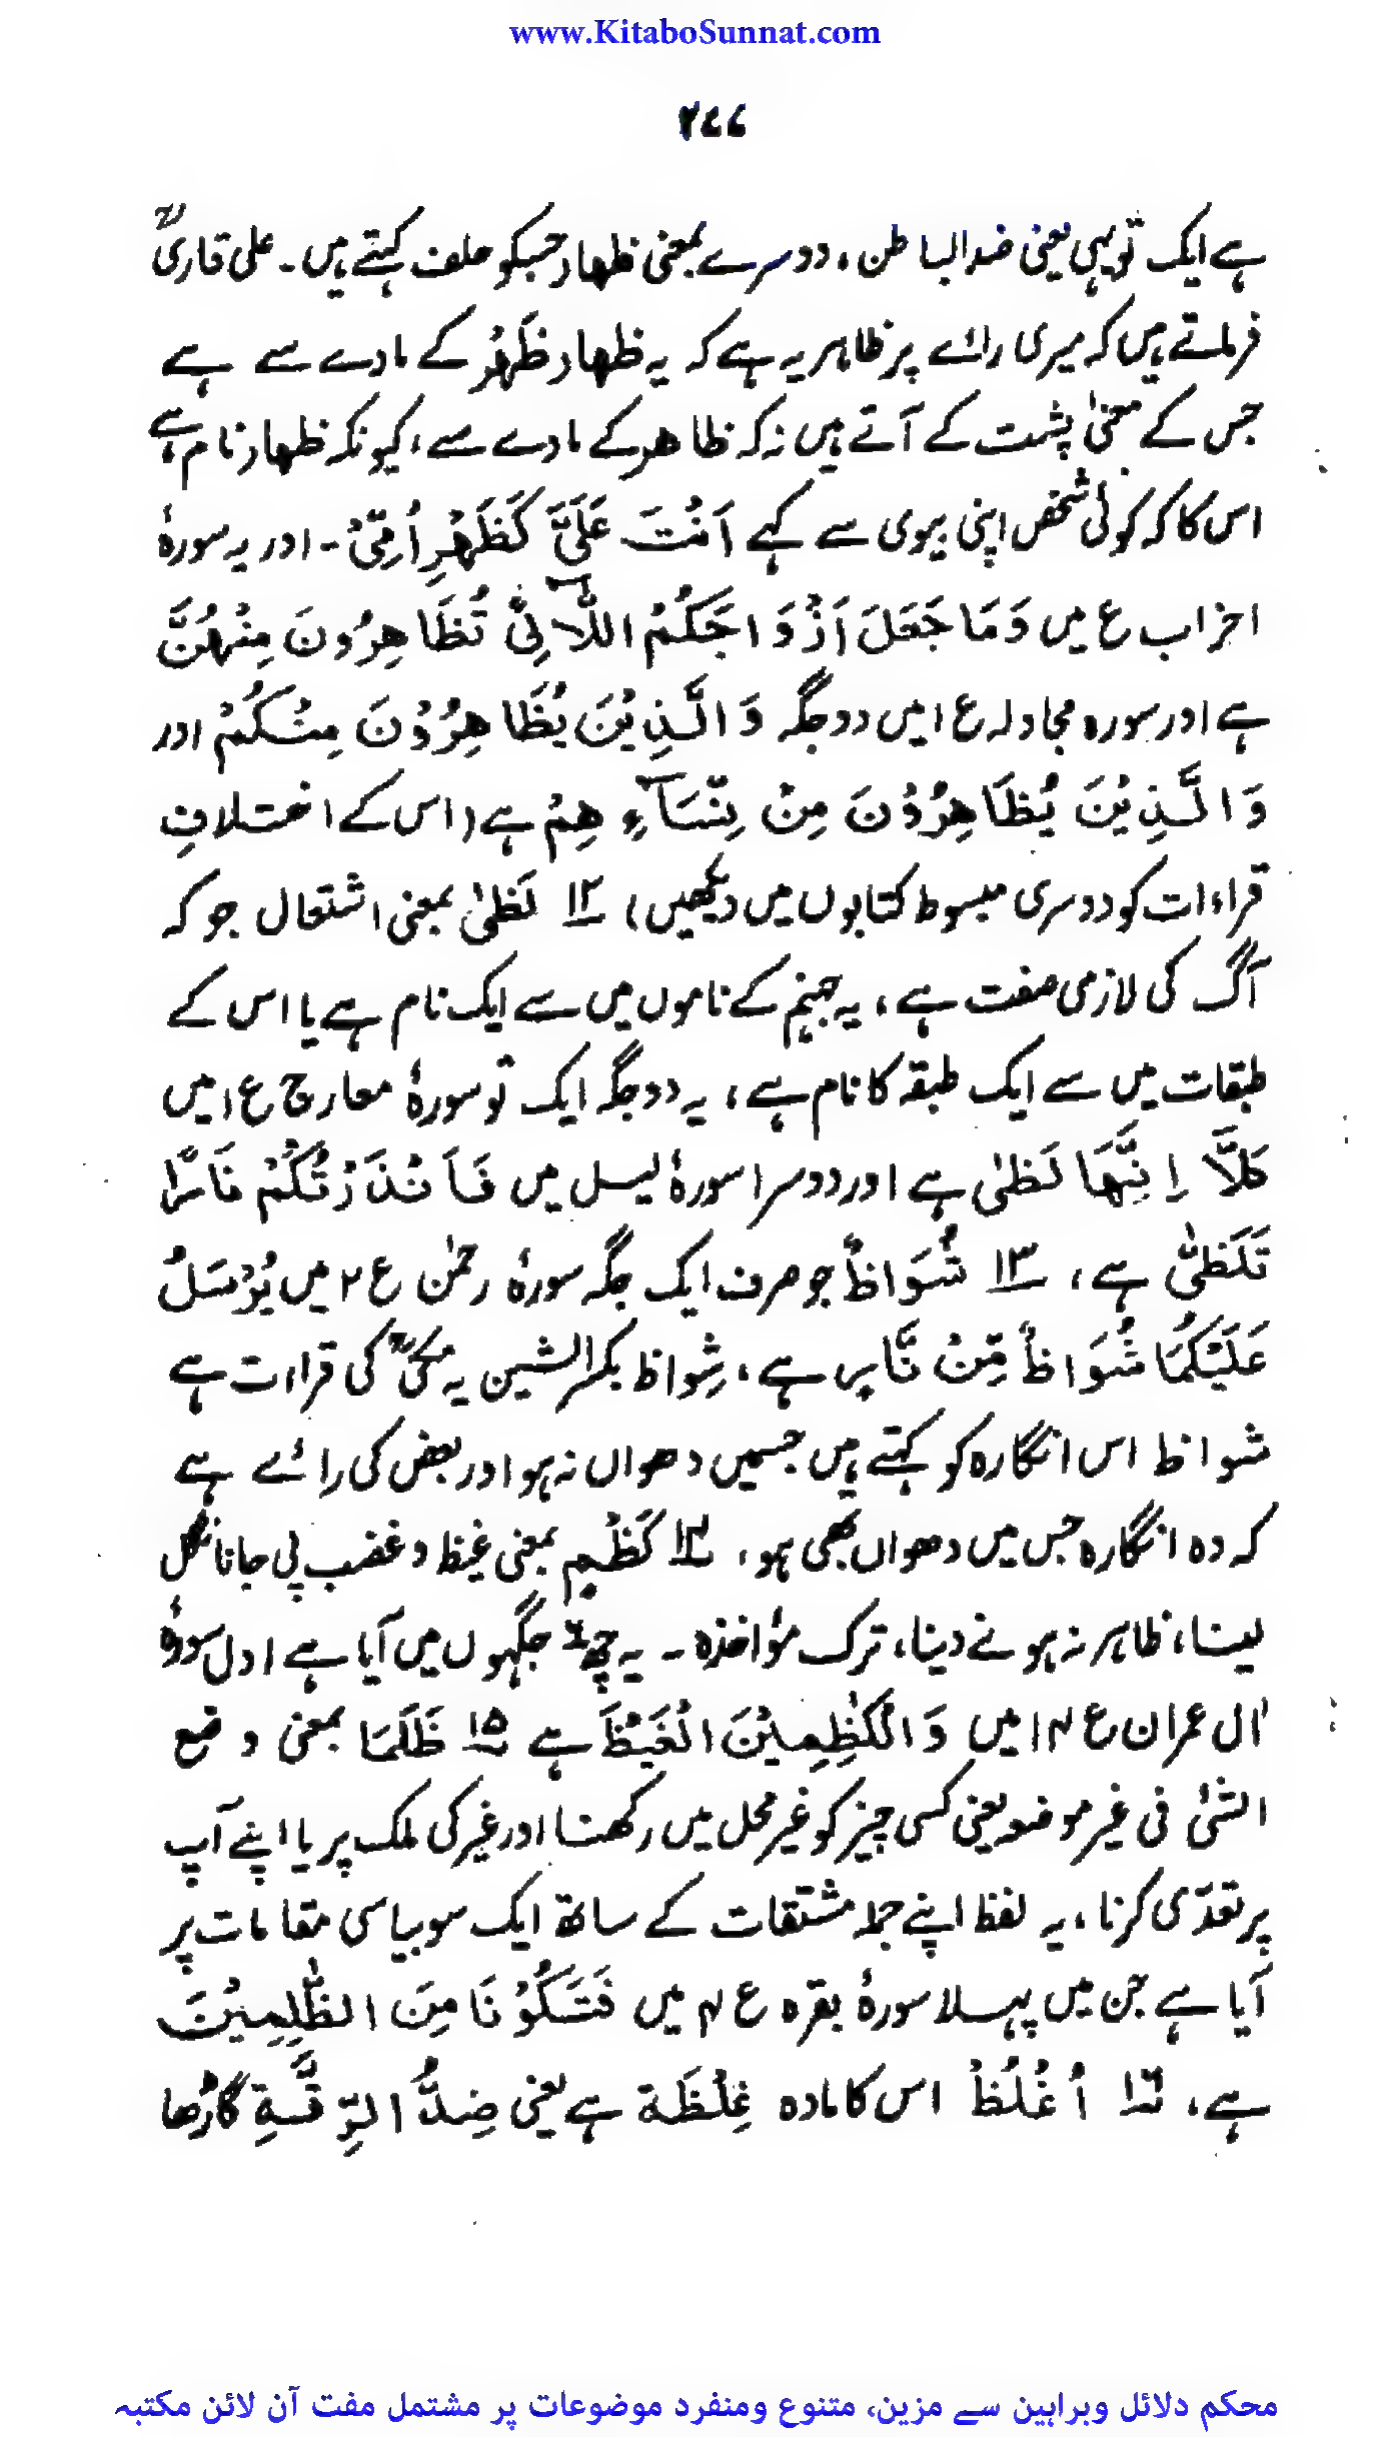 www.KitaboSunnat.com
۲۷۷
ہے ایک تو یہی یعنی ضد الباطن، دوسرے بمعنی ظہار جسکو حلف کہتے ہیں۔ علی قاریؒ
فرماتے ہیں کہ میری رائے پر ظاہر یہ ہے کہ یہ ظہار ظَہْر کے مادے سے ہے
جس کے معنیٰ پشت کے آتے ہیں نہ کہ ظاھر کے مادے سے، کیونکہ ظہار نام ہے
اس کا کہ کوئی شخص اپنی بیوی سے کہے اَنْتَ عَلَیَّ کَظَهْرِ اُمِّیْ۔ اور یہ سورۂ
احزاب ع میں وَمَا جَعَلَ اَزْوَاجَکُمُ اللَّآئِیْ تُظَاهِرُونَ مِنْهُنَّ
ہے اور سورہ مجادلہ ع ۱ میں دو جگہ وَالَّذِیْنَ یُظَاهِرُوْنَ مِنْکُمْ اور
وَالَّذِیْنَ یُظَاهِرُوْنَ مِنْ نِّسَآءِهِمْ ہے (اس کے اختلافِ
قراءات کو دوسری مبسوط کتابوں میں دیکھیں) ۱۲ لَظیٰ بمعنی اشتعال جو کہ
آگ کی لازمی صفت ہے، یہ جہنم کے ناموں میں سے ایک نام ہے یا اس کے
طبقات میں سے ایک طبقہ کا نام ہے، یہ دو جگہ ایک تو سورۂ معارج ع ۱ میں
کَلَّا اِنَّهَا لَظیٰ ہے اور دوسرا سورۂ لیل میں فَاَنْذَرْتُکُمْ نَارًا
تَلَظّٰی ہے، ۱۳ شُوَاظٌ جو صرف ایک جگہ سورۂ رحمٰن ع ۲ میں یُرْسَلُ
عَلَیْکُمَا شُوَاظٌ مِّنْ نَّارٍ ہے، شِواظ بکسر الشین یہ مکیؒ کی قراءت ہے
شواظ اس انگارہ کو کہتے ہیں جسمیں دھواں نہ ہو اور بعض کی رائے ہے
کہ وہ انگارہ جس میں دھواں بھی ہو، ۱۴ کَظْم بمعنی غیظ و غضب پی جانا نگل
لینا، ظاہر نہ ہونے دینا، ترک مؤاخذہ۔ یہ چھ جگہوں میں آیا ہے اول سورۂ
اٰل عمران ع ۱۴ میں وَالْکٰظِمِیْنَ الْغَیْظَ ہے ۱۵ ظَلَمَا بمعنی وضع
الشئ فی غیر موضعہ یعنی کسی چیز کو غیر محل میں رکھنا اور غیر کی ملک پر یا اپنے آپ
پر تعدّی کرنا، یہ لفظ اپنے جملہ مشتقات کے ساتھ ایک سو بیاسی مقامات پر
آیا ہے جن میں پہلا سورۂ بقرہ ع ۴ میں فَتَکُوْنَا مِنَ الظّٰلِمِیْنَ
ہے، ۱۶ اُغْلُظْ اس کا مادہ غِلْظَة ہے یعنی ضِدُّ الرِّقَّةِ گاڑھا
محکم دلائل وبراہین سے مزین، متنوع ومنفرد موضوعات پر مشتمل مفت آن لائن مکتبہ